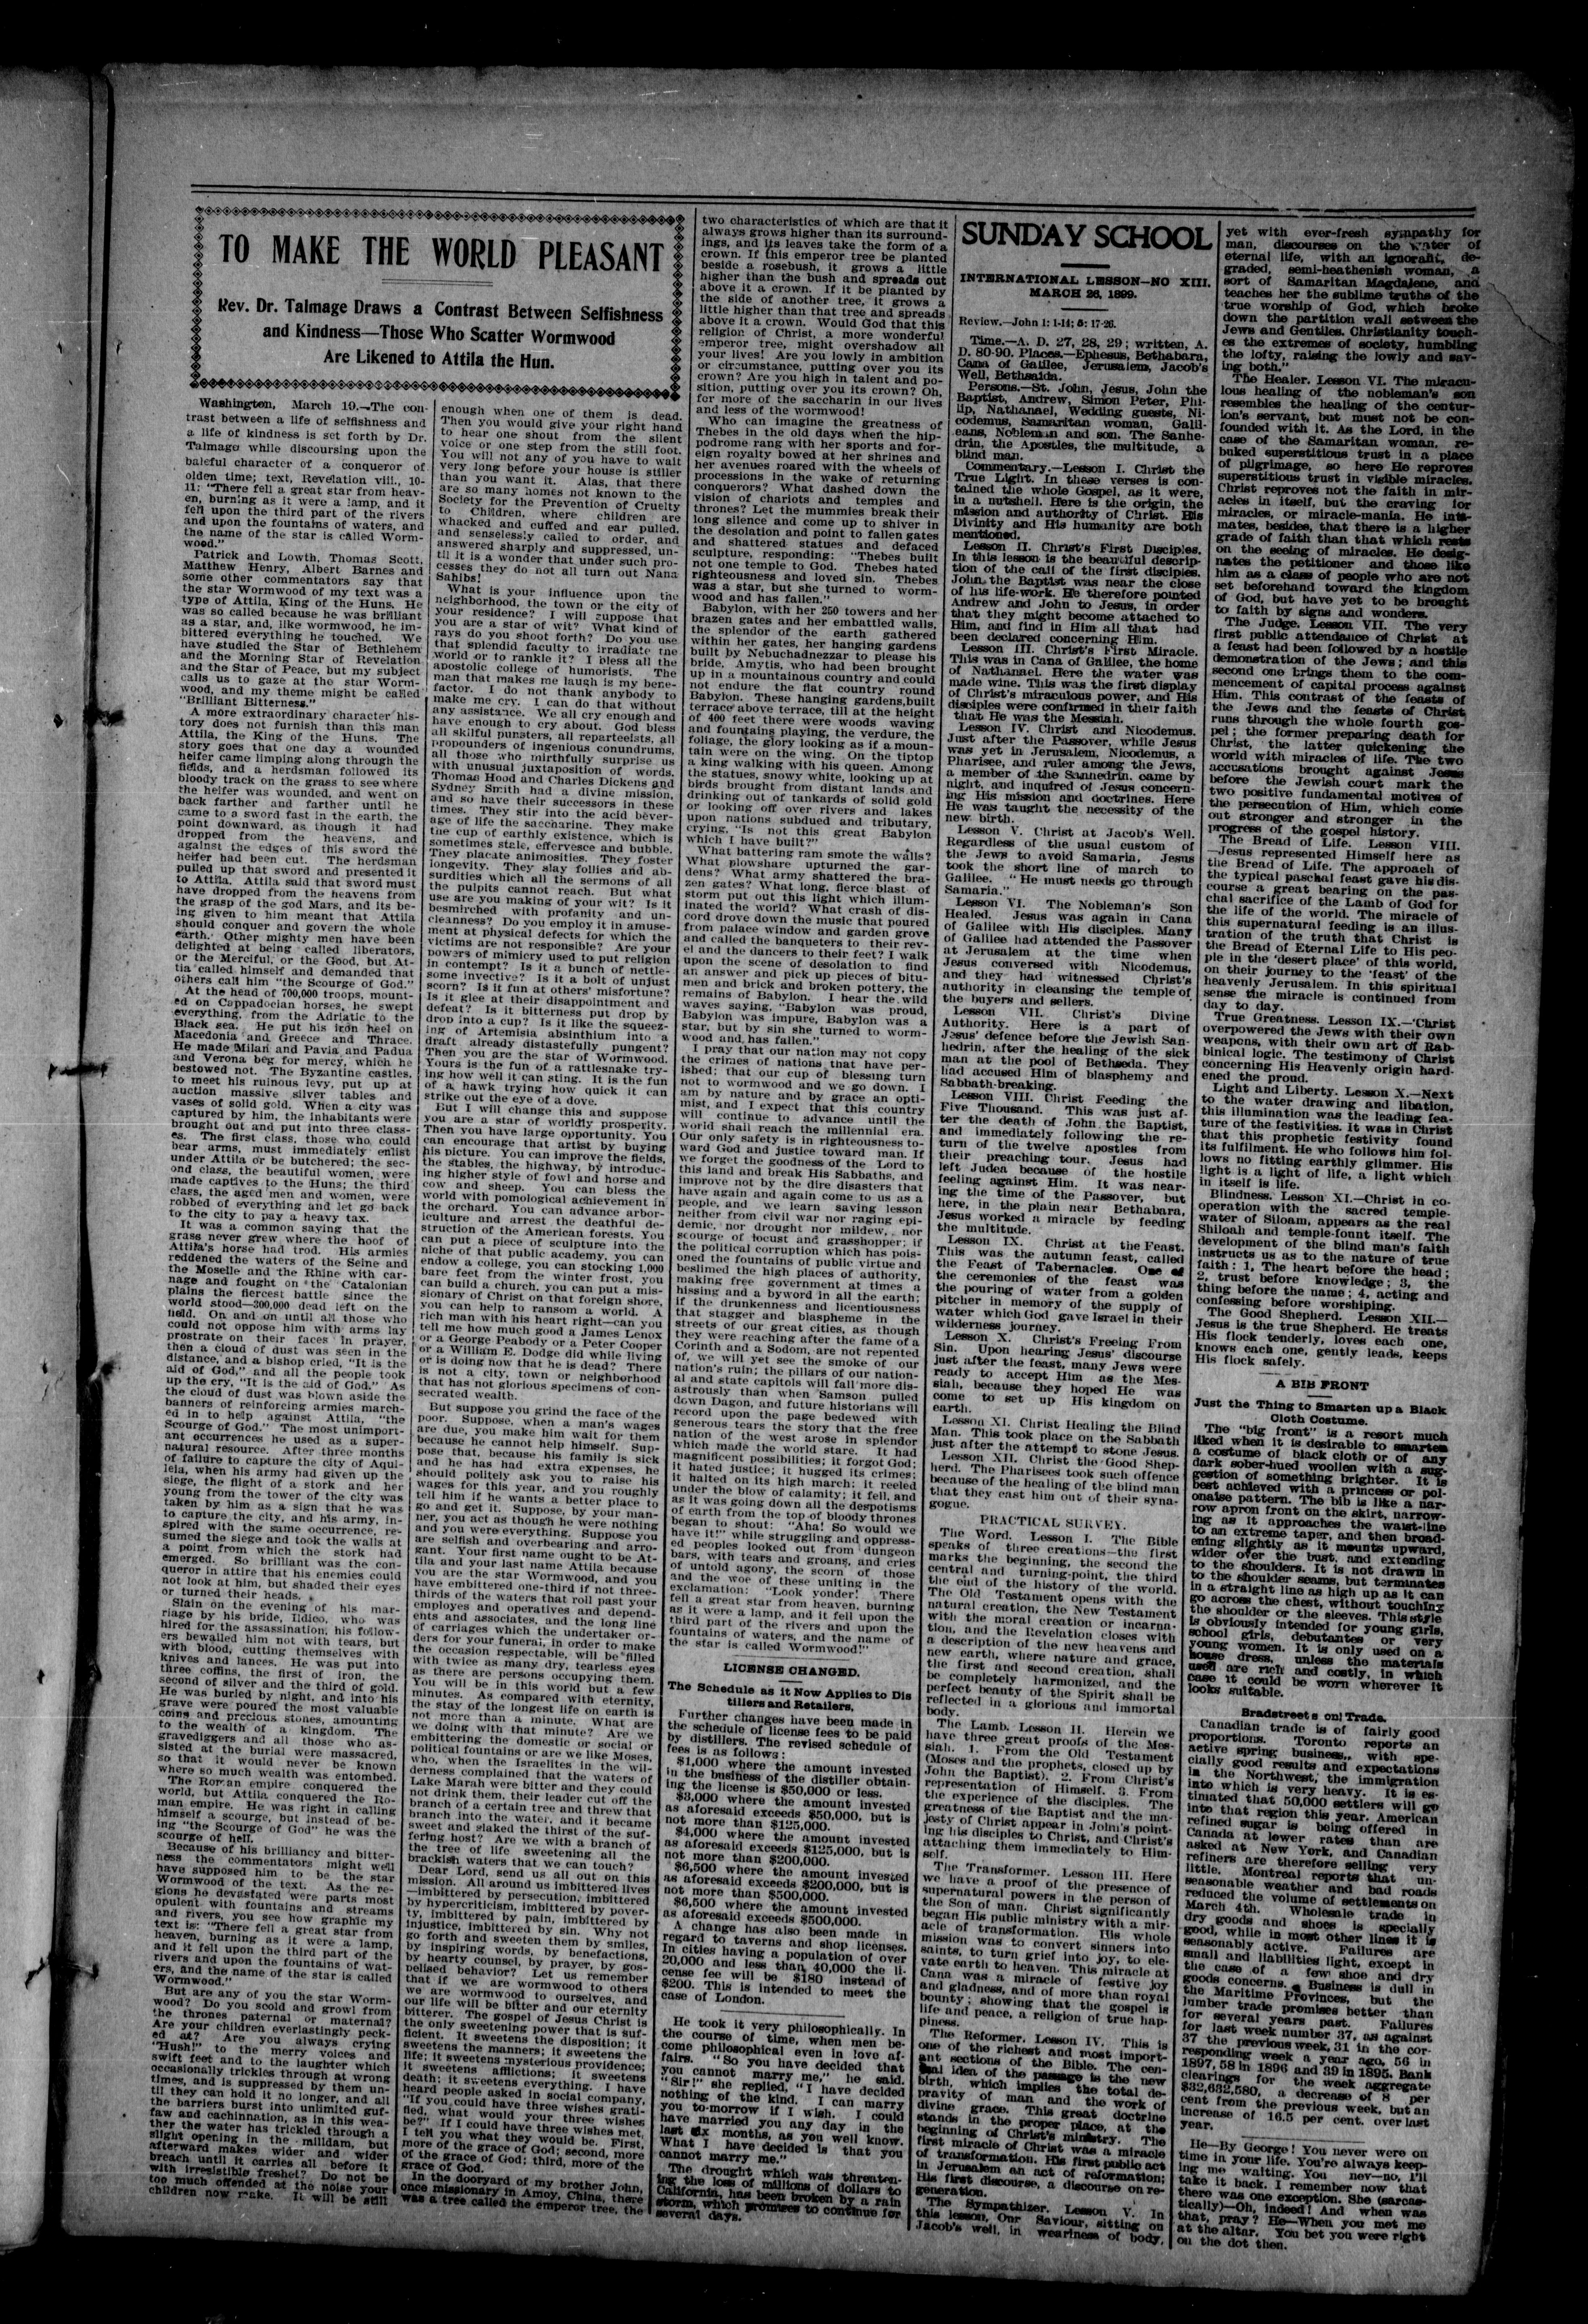 TO MAKE THE WORLD PLEASANT
Rev. Dr. Talmage Draws a Contrast Between Selfishness
and Kindness—Those Who Scatter Wormwood
Are Likened to Attila the Hun.
Washington, March 19.—The con-
trast between a life of selfishness and
a life of kindness is set forth by Dr.
Talmage while discoursing upon the
baleful character of a conqueror of
olden time; text, Revelation viii., 10-
11: "There fell a great star from heav-
en, burning as it were a lamp, and it
fell upon the third part of the rivers
and upon the fountains of waters, and
the name of the star is called Worm-
wood."
Patrick and Lowth, Thomas Scott,
Matthew Henry, Albert Barnes and
some other commentators say that
the star Wormwood of my text was a
type of Attila, King of the Huns. He
was so called because he was brilliant
as a star, and, like wormwood, he im-
bittered everything he touched. We
have studied the Star of Bethlehem
and the Morning Star of Revelation
and the Star of Peace, but my subject
calls us to gaze at the star Worm-
wood, and my theme might be called
"Brilliant Bitterness."
A more extraordinary character his-
tory does not furnish than this man
Attila, the King of the Huns. The
story goes that one day a wounded
heifer came limping along through the
fields, and a herdsman followed its
bloody track on the grass to see where
the heifer was wounded, and went on
back farther and farther until he
came to a sword fast in the earth, the
point downward, as though it had
dropped from the heavens, and
against the edges of this sword the
heifer had been cut. The herdsman
pulled up that sword and presented it
to Attila. Attila said that sword must
have dropped from the heavens from
the grasp of the god Mars, and its be-
ing given to him meant that Attila
should conquer and govern the whole
earth. Other mighty men have been
delighted at being called liberators,
or the Merciful, or the Good, but At-
tila called himself and demanded that
others call him "the Scourge of God."
At the head of 700,000 troops, mount-
ed on Cappadocian horses, he swept
everything, from the Adriatic to the
Black sea. He put his iron heel on
Macedonia and Greece and Thrace.
He made Milan and Pavia and Padua
and Verona beg for mercy, which he
bestowed not. The Byzantine castles,
to meet his ruinous levy, put up at
auction massive silver tables and
vases of solid gold. When a city was
captured by him, the inhabitants were
brought out and put into three class-
es. The first class, those who could
bear arms, must immediately enlist
under Attila or be butchered; the sec-
ond class, the beautiful women, were
made captives to the Huns; the third
class, the aged men and women, were
robbed of everything and let go back
to the city to pay a heavy tax.
It was a common saying that the
grass never grew where the hoof of
Attila's horse had trod. His armies
reddened the waters of the Seine and
the Moselle and the Rhine with car-
nage and fought on the Catalonian
plains the fiercest battle since the
world stood—300,000 dead left on the
field. On and on until all those who
could not oppose him with arms lay
prostrate on their faces in prayer,
then a cloud of dust was seen in the
distance, and a bishop cried, "It is the
aid of God," and all the people took
up the cry, "It is the aid of God." As
the cloud of dust was blown aside the
banners of reinforcing armies march-
ed in to help against Attila, "the
Scourge of God." The most unimport-
ant occurrences he used as a super-
natural resource. After three months
of failure to capture the city of Aqui-
leia, when his army had given up the
siege, the flight of a stork and her
young from the tower of the city was
taken by him as a sign that he was
to capture the city, and his army, in-
spired with the same occurrence, re-
sumed the siege and took the walls at
a point from which the stork had
emerged. So brilliant was the con-
queror in attire that his enemies could
not look at him, but shaded their eyes
or turned their heads.
Slain on the evening of his mar-
riage by his bride, Ildico, who was
hired for the assassination, his follow-
ers bewailed him not with tears, but
with blood, cutting themselves with
knives and lances. He was put into
three coffins, the first of iron, the
second of silver and the third of gold.
He was buried by night, and into his
grave were poured the most valuable
coins and precious stones, amounting
to the wealth of a kingdom. The
gravediggers and all those who as-
sisted at the burial were massacred,
so that it would never be known
where so much wealth was entombed.
The Roman empire conquered the
world, but Attila conquered the Ro-
man empire. He was right in calling
himself a scourge, but instead of be-
ing "the Scourge of God" he was the
scourge of hell.
Because of his brilliancy and bitter-
ness the commentators might well
have supposed him to be the star
Wormwood of the text. As the re-
gions he devastated were parts most
opulent with fountains and streams
and rivers, you see how graphic my
text is: "There fell a great star from
heaven, burning as it were a lamp,
and it fell upon the third part of the
rivers and upon the fountains of wat-
ers, and the name of the star is called
Wormwood."
But are any of you the star Worm-
wood? Do you scold and growl from
the thrones paternal or maternal?
Are your children everlastingly peck-
ed at? Are you always crying
"Hush!" to the merry voices and
swift feet and to the laughter which
occasionally trickles through at wrong
times, and is suppressed by them un-
til they can hold it no longer, and all
the barriers burst into unlimited guf-
faw and cachinnation, as in this wea-
ther the water has trickled through a
slight opening in the milldam, but
afterward makes wider and wider
breach until it carries all before it
with irresistible freshet? Do not be
too much offended at the noise your
children now make. It will be still
enough when one of them is dead.
Then you would give your right hand
to hear one shout from the silent
voice or one step from the still foot.
You will not any of you have to wait
very long before your house is stiller
than you want it. Alas, that there
are so many homes not known to the
Society for the Prevention of Cruelty
to Children, where children are
whacked and cuffed and ear pulled,
and senselessly called to order, and
answered sharply and suppressed, un-
til it is a wonder that under such pro-
cesses they do not all turn out Nana
Sahibs!
What is your influence upon the
neighborhood, the town or the city of
your residence? I will suppose that
you are a star of wit? What kind of
rays do you shoot forth? Do you use
that splendid faculty to irradiate the
world or to rankle it? I bless all the
apostolic college of humorists. The
man that makes me laugh is my bene-
factor. I do not thank anybody to
make me cry. I can do that without
any assistance. We all cry enough and
have enough to cry about. God bless
all skilful punsters, all reparteeists, all
propounders of ingenious conundrums,
all those who mirthfully surprise us
with unusual juxtaposition of words.
Thomas Hood and Charles Dickens and
Sydney Smith had a divine mission,
and so have their successors in these
times. They stir into the acid bever-
age of life the saccharine. They make
the cup of earthly existence, which is
sometimes stale, effervesce and bubble.
They placate animosities. They foster
longevity. They slay follies and ab-
surdities which all the sermons of all
the pulpits cannot reach. But what
use are you making of your wit? Is it
besmirched with profanity and un-
cleanness? Do you employ it in amuse-
ment at physical defects for which the
victims are not responsible? Are your
powers of mimicry used to put religion
in contempt? Is it a bunch of nettle-
some invective? Is it a bolt of unjust
scorn? Is it fun at others' misfortune?
Is it glee at their disappointment and
defeat? Is it bitterness put drop by
drop into a cup? Is it like the squeez-
ing of Artemisia absinthium into a
draft already distastefully pungent?
Then you are the star of Wormwood.
Yours is the fun of a rattlesnake try-
ing how well it can sting. It is the fun
of a hawk trying how quick it can
strike out the eye of a dove.
But I will change this and suppose
you are a star of worldly prosperity.
Then you have large opportunity. You
can encourage that artist by buying
his picture. You can improve the fields,
the stables, the highway, by introduc-
ing higher style of fowl and horse and
cow and sheep. You can bless the
world with pomological achievement in
the orchard. You can advance arbor-
iculture and arrest the deathful de-
struction of the American forests. You
can put a piece of sculpture into the
niche of that public academy, you can
endow a college, you can stocking 1,000
bare feet from the winter frost, you
can build a church, you can put a mis-
sionary of Christ on that foreign shore,
you can help to ransom a world. A
rich man with his heart right—can you
tell me how much good a James Lenox
or a George Peabody or a Peter Cooper
or a William E. Dodge did while living
or is doing now that he is dead? There
is not a city, town or neighborhood
that has not glorious specimens of con-
secrated wealth.
But suppose you grind the face of the
poor. Suppose, when a man's wages
are due, you make him wait for them
because he cannot help himself. Sup-
pose that, because his family is sick
and he has had extra expenses, he
should politely ask you to raise his
wages for this year, and you roughly
tell him if he wants a better place to
go and get it. Suppose, by your man-
ner, you act as though he were nothing
and you were everything. Suppose you
are selfish and overbearing and arro-
gant. Your first name ought to be At-
tila and your last name Attila because
you are the star Wormwood, and you
have embittered one-third if not three-
thirds of the waters that roll past your
employes and operatives and depend-
ents and associates, and the long line
of carriages which the undertaker or-
ders for your funeral, in order to make
the occasion respectable, will be filled
with twice as many dry, tearless eyes
as there are persons occupying them.
You will be in this world but a few
minutes. As compared with eternity,
the stay of the longest life on earth is
not more than a minute. What are
we doing with that minute? Are we
embittering the domestic or social or
political fountains or are we like Moses,
who, when the Israelites in the wil-
derness complained that the waters of
Lake Marah were bitter and they could
not drink them, their leader cut off the
branch of a certain tree and threw that
branch into the water, and it became
sweet and slaked the thirst of the suf-
fering host? Are we with a branch of
the tree of life sweetening all the
brackish waters that we can touch?
Dear Lord, send us all out on this
mission. All around us imbittered lives
—imbittered by persecution, imbittered
by hypercriticism, imbittered by pover-
ty, imbittered by pain, imbittered by
injustice, imbittered by sin. Why not
go forth and sweeten them by smiles,
by inspiring words, by benefactions,
by hearty counsel, by prayer, by gos-
pelised behavior? Let us remember
that if we are wormwood to others
we are wormwood to ourselves, and
our life will be bitter and our eternity
bitterer. The gospel of Jesus Christ is
the only sweetening power that is suf-
ficient. It sweetens the disposition; it
sweetens the manners; it sweetens the
life; it sweetens mysterious providence;
it sweetens afflictions; it sweetens
death; it sweetens everything. I have
heard people asked in social company,
"If you could have three wishes grati-
fied, what would your three wishes
be?" If I could have three wishes met,
I tell you what they would be. First,
more of the grace of God; second, more
of the grace of God; third, more of the
grace of God.
In the dooryard of my brother John,
once missionary in Amoy, China, there
was a tree called the emperor tree, the
two characteristics of which are that it
always grows higher than its surround-
ings, and its leaves take the form of a
crown. If this emperor tree be planted
beside a rosebush, it grows a little
higher than the bush and spreads out
above it a crown. If it be planted by
the side of another tree, it grows a
little higher than that tree and spreads
above it a crown. Would God that this
religion of Christ, a more wonderful
emperor tree, might overshadow all
your lives! Are you lowly in ambition
or circumstance, putting over you its
crown? Are you high in talent and po-
sition, putting over you its crown? Oh,
for more of the saccharin in our lives
and less of the wormwood!
Who can imagine the greatness of
Thebes in the old days when the hip-
podrome rang with her sports and for-
eign royalty bowed at her shrines and
her avenues roared with the wheels of
processions in the wake of returning
conquerors? What dashed down the
vision of chariots and temples and
thrones? Let the mummies break their
long silence and come up to shiver in
the desolation and point to fallen gates
and shattered statues and defaced
sculpture, responding: "Thebes built
not one temple to God. Thebes hated
righteousness and loved sin. Thebes
was a star, but she turned to worm-
wood and has fallen."
Babylon, with her 250 towers and her
brazen gates and her embattled walls,
the splendor of the earth gathered
within her gates, her hanging gardens
built by Nebuchadnezzar to please his
bride, Amytis, who had been brought
up in a mountainous country and could
not endure the flat country round
Babylon. These hanging gardens,built
terrace above terrace, till at the height
of 400 feet there were woods waving
and fountains playing, the verdure, the
foliage, the glory looking as if a moun-
tain were on the wing. On the tiptop
a king walking with his queen. Among
the statues, snowy white, looking up at
birds brought from distant lands and
drinking out of tankards of solid gold
or looking off over rivers and lakes
upon nations subdued and tributary,
crying, "Is not this great Babylon
which I have built?"
What battering ram smote the walls?
What plowshare upturned the gar-
dens? What army shattered the bra-
zen gates? What long, fierce blast of
storm put out this light which illum-
inated the world? What crash of dis-
cord drove down the music that poured
from palace window and garden grove
and called the banqueters to their rev-
el and the dancers to their feet? I walk
upon the scene of desolation to find
an answer and pick up pieces of bitu-
men and brick and broken pottery, the
remains of Babylon. I hear the wild
waves saying, "Babylon was proud,
Babylon was impure, Babylon was a
star, but by sin she turned to worm-
wood and has fallen."
I pray that our nation may not copy
the crimes of nations that have per-
ished; that our cup of blessing turn
not to wormwood and we go down. I
am by nature and by grace an opti-
mist, and I expect that this country
will continue to advance until the
world shall reach the millennial era.
Our only safety is in righteousness to-
ward God and justice toward man. If
we forget the goodness of the Lord to
this land and break His Sabbaths, and
improve not by the dire disasters that
have again and again come to us as a
people, and we learn saving lesson
neither from civil war nor raging epi-
demic, nor drought nor mildew, nor
scourge of locust and grasshopper; if
the political corruption which has pois-
oned the fountains of public virtue and
beslimed the high places of authority,
making free government at times a
hissing and a byword in all the earth;
if the drunkenness and licentiousness
that stagger and blaspheme in the
streets of our great cities, as though
they were reaching after the fame of a
Corinth and a Sodom, are not repented
of, we will yet see the smoke of our
nation's ruin; the pillars of our nation-
al and state capitols will fall more dis-
astrously than when Samson pulled
down Dagon, and future historians will
record upon the page bedewed with
generous tears the story that the free
nation of the west arose in splendor
which made the world stare. It had
magnificent possibilities; it forgot God;
it hated justice; it hugged its crimes;
it halted on its high march; it reeled
under the blow of calamity; it fell, and
as it was going down all the despotisms
of earth from the top of bloody thrones
began to shout: "Aha! So would we
have it!" while struggling and oppress-
ed peoples looked out from dungeon
bars, with tears and groans, and cries
of untold agony, the scorn of those
and the woe of these uniting in the
exclamation: "Look yonder! There
fell a great star from heaven, burning
as it were a lamp, and it fell upon the
third part of the rivers and upon the
fountains of waters, and the name of
the star is called Wormwood!"
LICENSE CHANGED.
The Schedule as it Now Applies to Dis
tillers and Retailers.
Further changes have been made in
the schedule of license fees to be paid
by distillers. The revised schedule of
fees is as follows:
$1,000 where the amount invested
in the business of the distiller obtain-
ing the license is $50,000 or less.
$3,000 where the amount invested
as aforesaid exceeds $50,000, but is
not more than $125,000.
$4,000 where the amount invested
as aforesaid exceeds $125,000, but is
not more than $200,000.
$6,500 where the amount invested
as aforesaid exceeds $200,000, but is
not more than $500,000.
$6,500 where the amount invested
as aforesaid exceeds $500,000.
A change has also been made in
regard to taverns and shop licenses.
In cities having a population of over
20,000 and less than 40,000 the li-
cense fee will be $180 instead of
$200. This is intended to meet the
case of London.
He took it very philosophically. In
the course of time, when men be-
come philosophical even in love af-
fairs. "So you have decided that
you cannot marry me," he said.
"Sir!" she replied, "I have decided
nothing of the kind. I can marry
you to-morrow if I wish. I could
have married you any day in the
last six months, as you well know.
What I have decided is that you
cannot marry me."
The drought which was threaten-
ing the loss of millions of dollars to
California, has been broken by a rain
storm, which promises to continue for
several days.
SUNDAY SCHOOL
INTERNATIONAL LESSON—NO XIII.
MARCH 26, 1899.
Review.—John 1: 1-14; 5: 17-26.
Time.—A. D. 27, 28, 29; written, A.
D. 80-90. Places.—Ephesus, Bethabara,
Cana of Galilee, Jerusalem, Jacob's
Well, Bethsaida.
Persons.—St. John, Jesus, John the
Baptist, Andrew, Simon Peter, Phi-
lip, Nathanael, Wedding guests, Ni-
codemus, Samaritan woman, Galil-
eans, Nobleman and son. The Sanhe-
drin, the Apostles, the multitude, a
blind man.
Commentary.—Lesson I. Christ the
True Light. In these verses is con-
tained the whole Gospel, as it were,
in a nutshell. Here is the origin, the
mission and authority of Christ. His
Divinity and His humanity are both
mentioned.
Lesson II. Christ's First Disciples.
In this lesson is the beautiful descrip-
tion of the call of the first disciples.
John the Baptist was near the close
of his life-work. He therefore pointed
Andrew and John to Jesus, in order
that they might become attached to
Him, and find in Him all that had
been declared concerning Him.
Lesson III. Christ's First Miracle.
This was in Cana of Galilee, the home
of Nathanael. Here the water was
made wine. This was the first display
of Christ's miraculous power, and His
disciples were confirmed in their faith
that He was the Messiah.
Lesson IV. Christ and Nicodemus.
Just after the Passover, while Jesus
was yet in Jerusalem, Nicodemus, a
Pharisee, and ruler among the Jews,
a member of the Sannedrin, came by
night, and inquired of Jesus concern-
ing His mission and doctrines. Here
He was taught the necessity of the
new birth.
Lesson V. Christ at Jacob's Well.
Regardless of the usual custom of
the Jews to avoid Samaria, Jesus
took the short line of march to
Galilee. "He must needs go through
Samaria."
Lesson VI. The Nobleman's Son
Healed. Jesus was again in Cana
of Galilee with His disciples. Many
of Galilee had attended the Passover
at Jerusalem at the time when
Jesus conversed with Nicodemus,
and they had witnessed Christ's
authority in cleansing the temple of
the buyers and sellers.
Lesson VII. Christ's Divine
Authority. Here is a part of
Jesus' defence before the Jewish San-
hedrin, after the healing of the sick
man at the pool of Bethseda. They
had accused Him of blasphemy and
Sabbath-breaking.
Lesson VIII. Christ Feeding the
Five Thousand. This was just af-
ter the death of John the Baptist,
and immediately following the re-
turn of the twelve apostles from
their preaching tour. Jesus had
left Judea because of the hostile
feeling against Him. It was near-
ing the time of the Passover, but
here, in the plain near Bethabara,
Jesus worked a miracle by feeding
the multitude.
Lesson IX. Christ at the Feast.
This was the autumn feast, called
the Feast of Tabernacles. One of
the ceremonies of the feast was
the pouring of water from a golden
pitcher in memory of the supply of
water which God gave Israel in their
wilderness journey.
Lesson X. Christ's Freeing From
Sin. Upon hearing Jesus' discourse
just after the feast, many Jews were
ready to accept Him as the Mes-
siah, because they hoped He was
come to set up His kingdom on
earth.
Lesson XI. Christ Healing the Blind
Man. This took place on the Sabbath
just after the attempt to stone Jesus.
Lesson XII. Christ the Good Shep-
herd. The Pharisees took such offence
because of the healing of the blind man
that they cast him out of their syna-
gogue.
PRACTICAL SURVEY.
The Word. Lesson I. The Bible
speaks of three creations—the first
marks the beginning, the second the
central and turning-point, the third
the end of the history of the world.
The Old Testament opens with the
natural creation, the New Testament
with the moral creation or incarna-
tion, and the Revelation closes with
a description of the new heavens and
new earth, where nature and grace,
the first and second creation, shall
be completely harmonized, and the
perfect beauty of the Spirit shall be
reflected in a glorious and immortal
body.
The Lamb. Lesson II. Herein we
have three great proofs of the Mes-
siah. 1. From the Old Testament
(Moses and the prophets, closed up by
John the Baptist). 2. From Christ's
representation of Himself. 3. From
the experience of the disciples. The
greatness of the Baptist and the ma-
jesty of Christ appear in John's point-
ing his disciples to Christ, and Christ's
attaching them immediately to Him-
self.
The Transformer. Lesson III. Here
we have a proof of the presence of
supernatural powers in the person of
the Son of man. Christ significantly
began His public ministry with a mir-
acle of transformation. His whole
mission was to convert sinners into
saints, to turn grief into joy, to ele-
vate earth to heaven. This miracle at
Cana was a miracle of festive joy
and gladness, and of more than royal
bounty; showing that the gospel is
life and peace, a religion of true hap-
piness.
The Reformer. Lesson IV. This is
one of the richest and most import-
ant sections of the Bible. The cen-
tral idea of the passage is the new
birth, which implies the total de-
pravity of man and the work of
divine grace. This great doctrine
stands in the proper place, at the
beginning of Christ's ministry. The
first miracle of Christ was a miracle
of transformation. His first public act
in Jerusalem an act of reformation;
His first discourse, a discourse on re-
generation.
The Sympathizer. Lesson V. In
this lesson, Our Saviour, sitting on
Jacob's well, in weariness of body,
yet with ever-fresh sympathy for
man, discourses on the water of
eternal life, with an ignorant, de-
graded, semi-heathenish woman, a
sort of Samaritan Magdalene, and
teaches her the sublime truths of the
true worship of God, which broke
down the partition wall between the
Jews and Gentiles. Christianity touch-
es the extremes of society, humbling
the lofty, raising the lowly and sav-
ing both."
The Healer. Lesson VI. The miracu-
lous healing of the nobleman's son
resembles the healing of the centur-
ion's servant, but must not be con-
founded with it. As the Lord, in the
case of the Samaritan woman, re-
buked superstitious trust in a place
of pilgrimage, so here He reproves
superstitious trust in visible miracles.
Christ reproves not the faith in mir-
acles in itself, but the craving for
miracles, or miracle-mania. He inti-
mates, besides, that there is a higher
grade of faith than that which rests
on the seeing of miracles. He desig-
nates the petitioner and those like
him as a class of people who are not
set beforehand toward the kingdom
of God, but have yet to be brought
to faith by signs and wonders.
The Judge. Lesson VII. The very
first public attendance of Christ at
a feast had been followed by a hostile
demonstration of the Jews; and this
second one brings them to the com-
mencement of capital process against
Him. This contrast of the feasts of
the Jews and the feasts of Christ
runs through the whole fourth gos-
pel; the former preparing death for
Christ, the latter quickening the
world with miracles of life. The two
accusations brought against Jesus
before the Jewish court mark the
two positive fundamental motives of
the persecution of Him, which come
out stronger and stronger in the
progress of the gospel history.
The Bread of Life. Lesson VIII.
—Jesus represented Himself here as
the Bread of Life. The approach of
the typical paschal feast gave his dis-
course a great bearing on the pas-
chal sacrifice of the Lamb of God for
the life of the world. The miracle of
this supernatural feeding is an illus-
tration of the truth that Christ is
the Bread of Eternal Life to His peo-
ple in the 'desert place' of this world,
on their journey to the 'feast' of the
heavenly Jerusalem. In this spiritual
sense the miracle is continued from
day to day.
True Greatness. Lesson IX.—'Christ
overpowered the Jews with their own
weapons, with their own art of Rab-
binical logic. The testimony of Christ
concerning His Heavenly origin hard-
ened the proud.
Light and Liberty. Lesson X.—Next
to the water drawing and libation,
this illumination was the leading fea-
ture of the festivities. It was in Christ
that this prophetic festivity found
its fulfilment. He who follows him fol-
lows no fitting earthly glimmer. His
light is a light of life, a light which
in itself is life.
Blindness. Lesson XI.—Christ in co-
operation with the sacred temple-
water of Siloam, appears as the real
Shiloah and temple-fount itself. The
development of the blind man's faith
instructs us as to the nature of true
faith: 1, The heart before the head;
2, trust before knowledge; 3, the
thing before the name; 4, acting and
confessing before worshiping.
The Good Shepherd. Lesson XII.—
Jesus is the true Shepherd. He treats
His flock tenderly, loves each one,
knows each one, gently leads, keeps
His flock safely.
A BIB FRONT
Just the Thing to Smarten up a Black
Cloth Costume.
The "big front" is a resort much
liked when it is desirable to smarten
a costume of black cloth or of any
dark sober-hued woollen with a sug-
gestion of something brighter. It is
best achieved with a princess or pol-
onaise pattern. The bib is like a nar-
row apron front on the skirt, narrow-
ing as it approaches the waist-line
to an extreme taper, and then broad-
ening slightly as it mounts upward,
wider over the bust, and extending
to the shoulders. It is not drawn in
to the shoulder seams, but terminates
in a straight line as high up as it can
go across the chest, without touching
the shoulder or the sleeves. This style
is obviously intended for young girls,
school girls, debutantes or very
young women. It is only used on a
house dress, unless the materials
used are rich and costly, in which
case it could be worn wherever it
looks suitable.
Bradstreets on Trade.
Canadian trade is of fairly good
proportions. Toronto reports an
active spring business, with spe-
cially good results and expectations
in the Northwest, the immigration
into which is very heavy. It is es-
timated that 50,000 settlers will go
into that region this year. American
refined sugar is being offered in
Canada at lower rates than are
asked at New York, and Canadian
refiners are therefore selling very
little. Montreal reports that un-
seasonable weather and bad roads
reduced the volume of settlements on
March 4th. Wholesale trade in
dry goods and shoes is specially
good, while in most other lines it is
seasonably active. Failures are
small and liabilities light, except in
the case of a few shoe and dry
goods concerns. Business is dull in
the Maritime Provinces, but the
lumber trade promises better than
for several years past. Failures
for last week number 37, as against
37 the previous week, 31 in the cor-
responding week a year ago, 56 in
1897, 58 in 1896 and 39 in 1895. Bank
clearings for the week aggregate
$32,632,580, a decrease of 8 per
cent from the previous week, but an
increase of 16.5 per cent. over last
year.
He—By George! You never were on
time in your life. You're always keep-
ing me waiting. You nev—no, I'll
take it back. I remember now that
there was one exception. She (sarcas-
tically)—Oh, indeed! And when was
that, pray? He—When you met me
at the altar. You bet you were right
on the dot then.